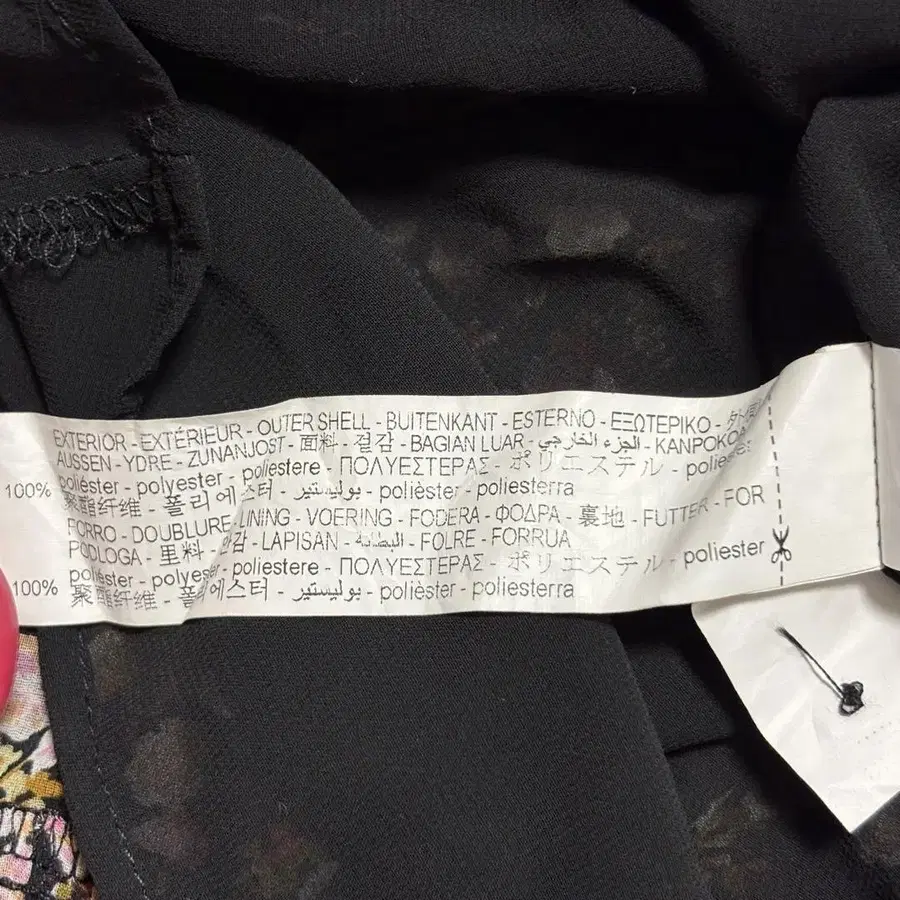 EXTERIOR - EXTÉRIEUR - OUTER SHELL - BUITENKANT - ESTERNO - ΕΞΩΤΕΡΙΚΟ -
AUSSEN - YDRE - ZUNANJOST - 面料 - 겉감 - BAGIAN LUAR - الجزء الخارجي - KANPOKOA
100% poliéster - polyester - poliestere - ΠΟΛΥΕΣΤΕΡΑΣ - ポリエステル -
聚酯纤维 - 폴리에스터 - بوليستير - polièster - poliesterra
FORRO - DOUBLURE - LINING - VOERING - FODERA - ΦΟΔΡΑ - 裏地 - FUTTER - FOR
PODLOGA - 里料 - 안감 - LAPISAN - البطانة - FOLRE - FORRUA
100% poliéster - polyester - poliestere - ΠΟΛΥΕΣΤΕΡΑΣ - ポリエステル - poliester
聚酯纤维 - 폴리에스터 - بوليستير - polièster - poliesterra